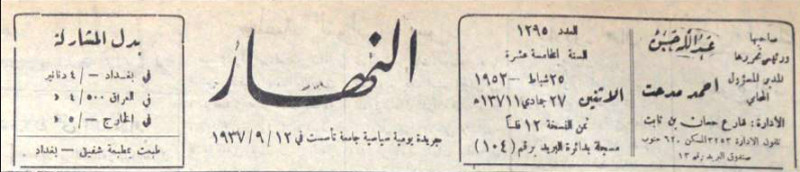 صاحبها
ورئيس تحريرها
عبدالله حسن
المدير المسؤول
المحامي
احمد مدحت
الأدارة: شارع حسان بن ثابت
تلفون الادارة ٣٢٥٣ السكن ٦٢٠ جنوب
صندوق البريد رقم ١٣
العدد ١٢٩٥
السنة الخامسة عشرة
الاثنين
٢٥ شباط — ١٩٥٢
٢٧ جمادي ١٣٧١١ه
ثمن النسخة ١٢ فلساً
مسجلة بدائرة البريد برقم (١٠٤)
النهار
جريدة يومية سياسية جامعة تأسست في ١٢/٩/١٩٣٧
بدل المشاركة
في بغداد —/٤ دنانير
في العراق ٤/٥٠٠ »
في الخارج —/٥ »
طبعت بمطبعة شفيق - بغداد